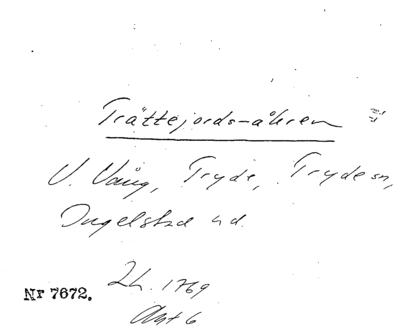 Trättejords-åkren
V. Vång, Tryde, Tryde sn,
Ingelstad hd.
Lh. 1769
Akt 6
Nr 7672.